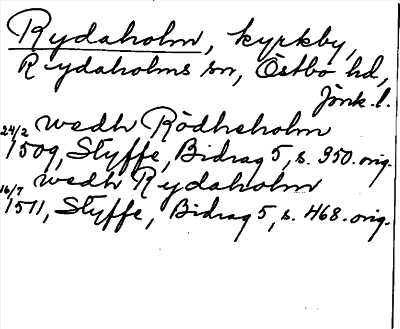 Rydaholm, kyrkby,
Rydaholms sn, Östbo hd,
Jönk.l.
24/2 wedh Rödheholm
1509, Styffe, Bidrag 5, s. 350. orig.
16/7 wedh Rydaholm
1511, Styffe, Bidrag 5, s. 468. orig.